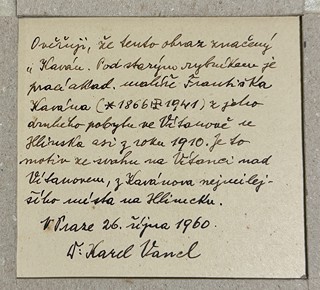 Ověřuji, že tento obraz značený
„Kaván. Pod starým rybníkem je
prací akad. malíře Františka
Kavána (*1866 1941) z jeho
druhého pobytu ve Vítanově u
Hlinska asi z roku 1910. Je to
motiv ze svahu na Vítanci nad
Vítanovem, z Kavánova nejmilej-
šího místa na Hlinecku.
V Praze 26. října 1960.
Dr Karel Vancl